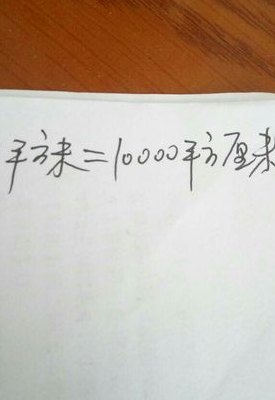 平方米=10000平方厘米